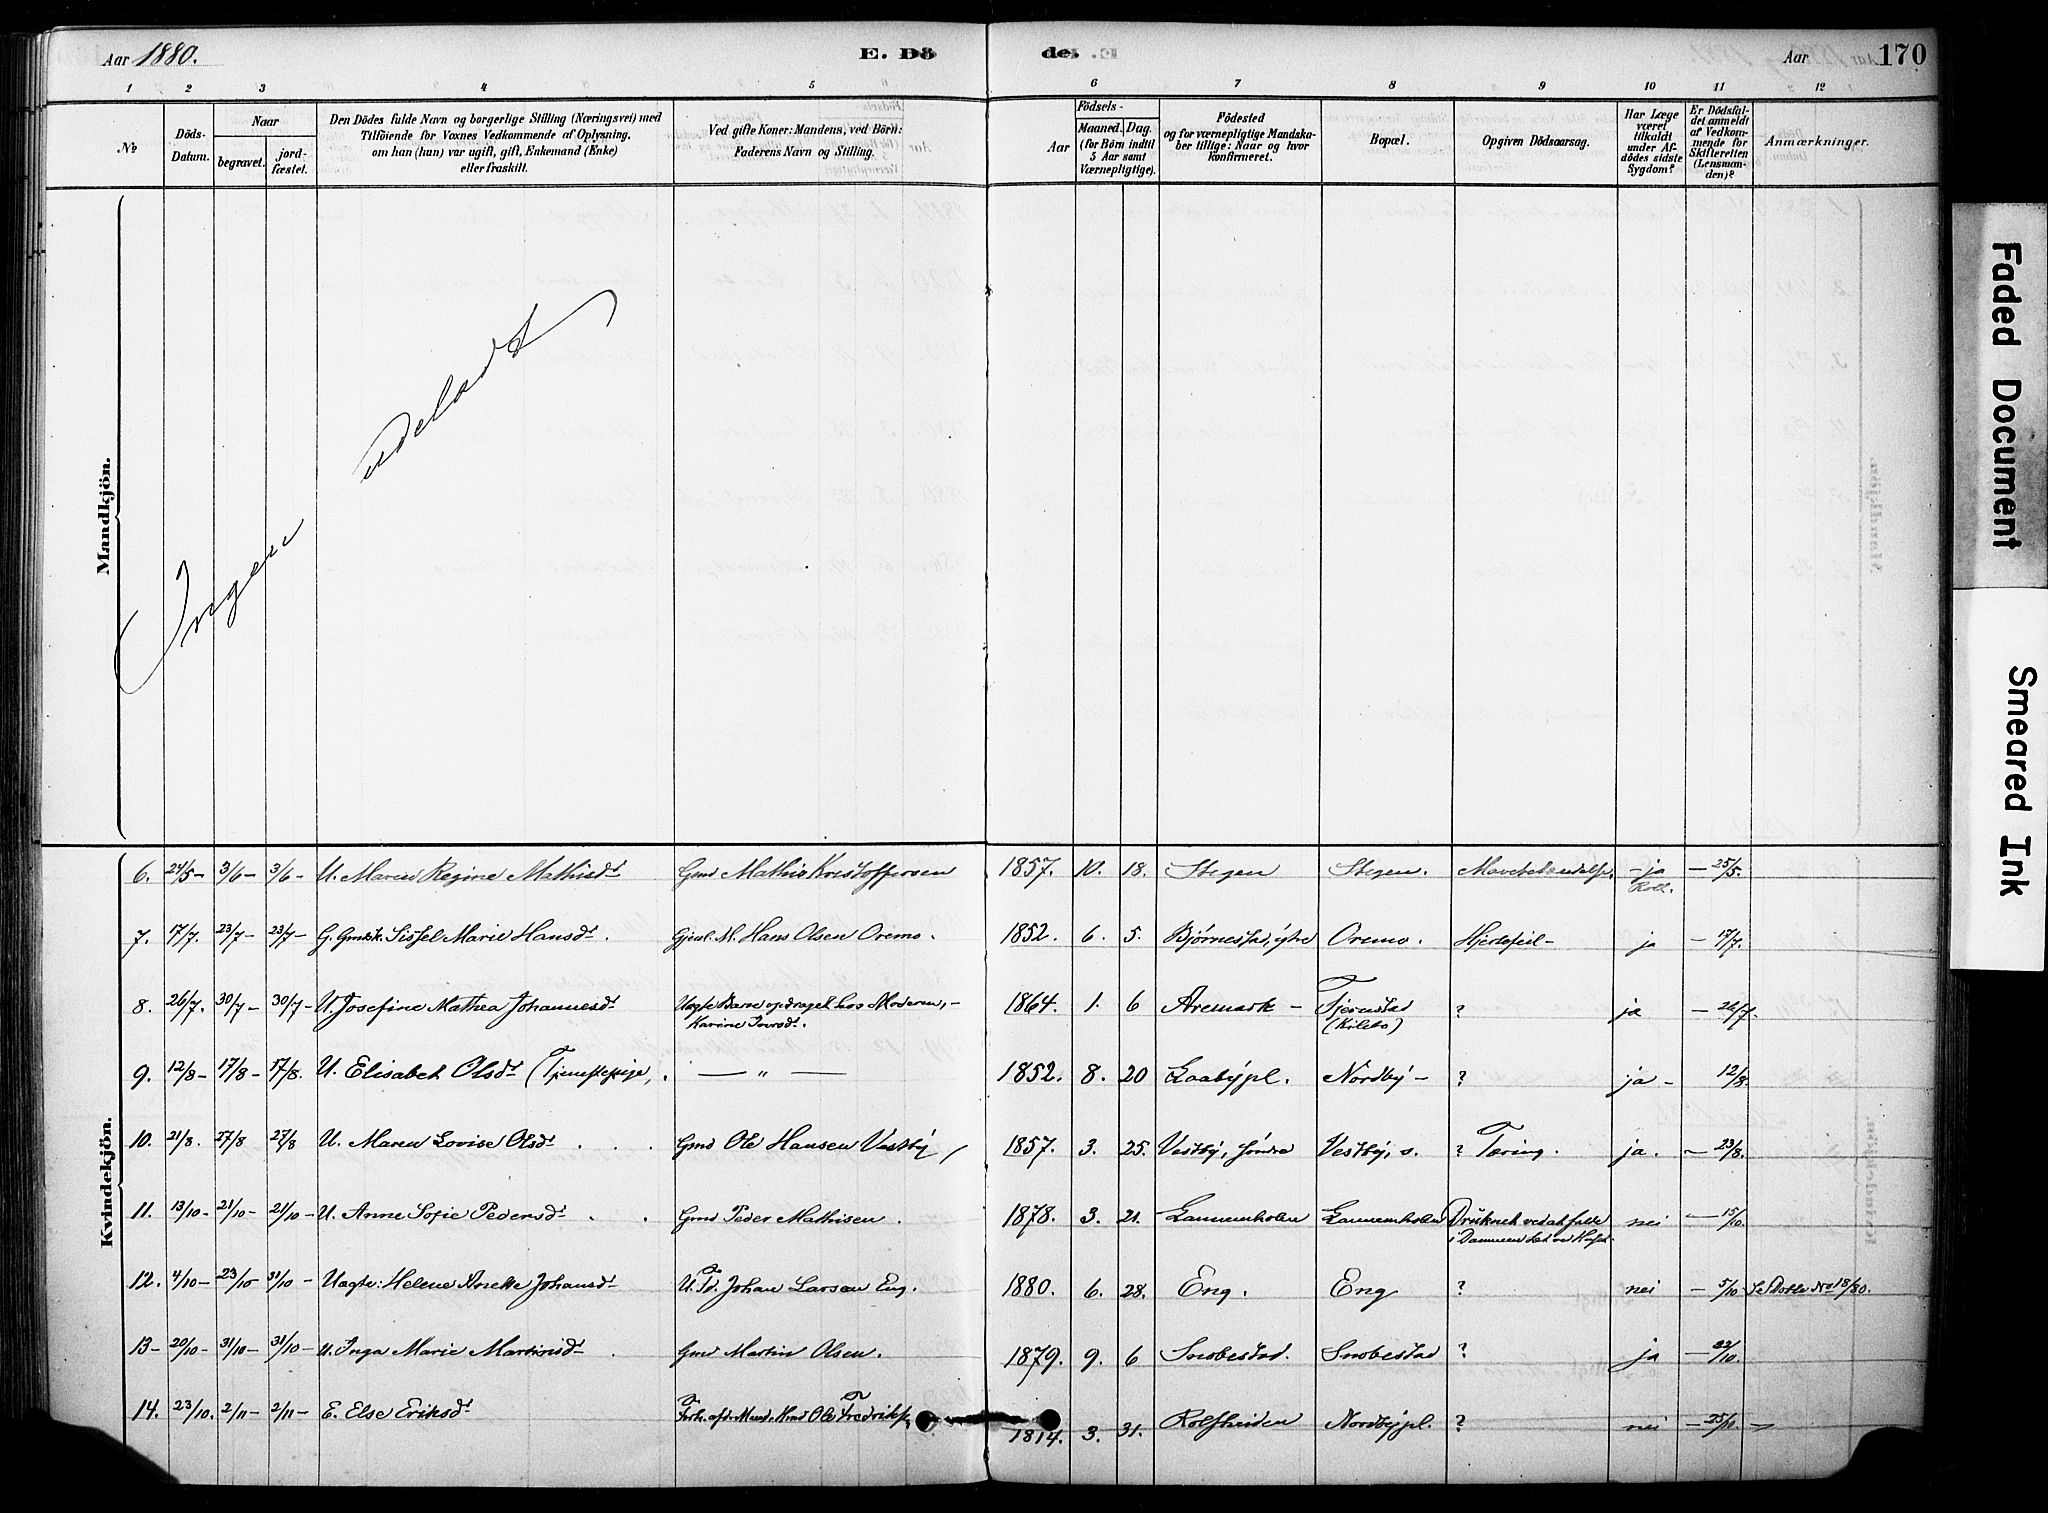 Aar 1880.
E. Dö
de.
Aar
170
1 2 3 4 5 6 7 8 9 10 11 12
No
Döds-Datum.
Naar
begravet.
jord-fæstet.
Den Dödes fulde Navn og borgerlige Stilling (Næringsvei) med
Tilföiende for Voxnes Vedkommende af Oplysning,
om han (hun) var ugift, gift, Enkemand (Enke)
eller fraskilt.
Ved gifte Koner: Mandens, ved Börn:
Faderens Navn og Stilling.
Födsels-
Aar
Maaned. Dag.
(for Börn indtil
5 Aar samt
Værnepligtige).
Födested
og for værnepligtige Mandska-
ber tillige: Naar og hvor
konfirmeret.
Bopæl.
Opgiven Dödsaarsag.
Har Læge
været
tilkaldt
under Af-
dödes sidste
Sygdom?
Er Dödsfal-
det anmeldt
af Vedkom-
mende for
Skifteretten
(Lensman-
den)?
Anmærkninger.
Mandkjön.
Ingen udeladt
Kvindekjön.
6. 24/5 - 3/6 - 3/6 - U. Maren Regine Mathisdr Gmd Mathis Kristoffersen 1857. 10. 18. Stegen Stegen. Mavebetændelse. - ja — 25/5.
7. 17/7. 23/7 - 23/7 - G. Gmdsk. Sissel Marie Hansdr. Gjenl. M. Hans Olsen Oremo. 1852. 6. 5. Bjørnestad, ytre Oremo. Hjertefeil - ja — 17/7.
8. 26/7. 30/7 - 30/7 - U. Josefine Mathea Johannesdr Uægte Barn opdraget hos Moderen, -
Karine Iversdr. 1864. 1. 6 Aremark - Tjernstad
(Kilebo) ? ja — 26/7.
9. 12/8 - 17/8 - 17/8. U. Elisabet Olsdr (Tjenestepige, . — „ — 1852. 8. 20 Laabypl. Nordby - ? ja - 12/8.
10. 21/8. 27/8 27/8 U. Maren Lovise Olsdr . . Gmd Ole Hansen Vestby 1857. 3. 25. Vestby, søndre Vestby, s. ? Tæring. ja. — 23/8.
11. 13/10 - 21/10 - 21/10 - U. Anne Sofie Pedersdr . . Gmd Peder Mathisen. 1878. 3. 21. Lannemholm Lannemholm Druknet ved at falde
i Dammen nei — 15/10.
12. 4/10 - 23/10 31/10 - Uægte: Helene Anette Johansdr U. Johan Larsen Eng. 1880. 6. 28. Eng. Eng ? nei — 5/10 Se Døbte No 18/80.
13 - 20/10 - 31/10 - 31/10 - U. Inga Marie Martinsdr . Gmd Martin Olsen. 1879. 9. 6 Snobestad. Snobestad ? ja — 22/10.
14. 23/10. 2/11 - 2/11 - E. Else Eriksdr Forh. afd. Mand: Gmd Ole Fredriks. 1814. 3. 31. Rolfheiden Nordbypl. ? nei — 25/10. —
Faded Document
Smeared Ink